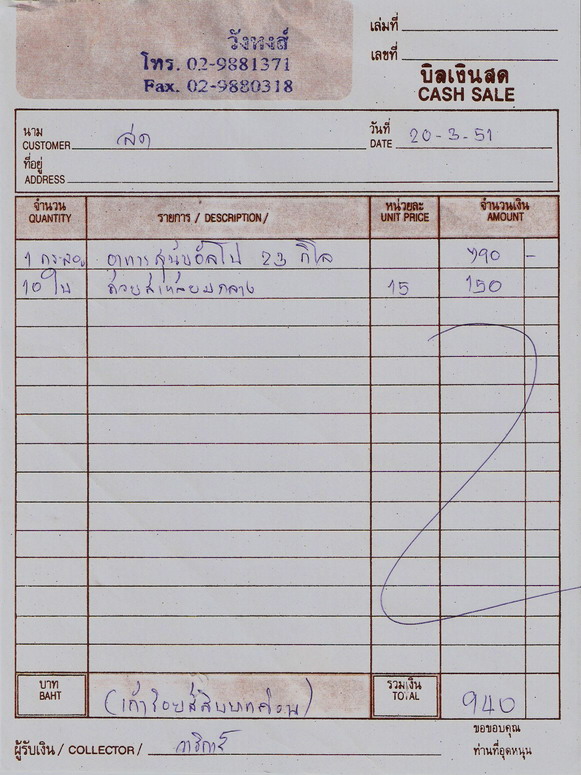 วังหงส์
โทร. 02-9881371
Fax. 02-9880318
เล่มที่
เลขที่
บิลเงินสด
CASH SALE
นาม
CUSTOMER สด
วันที่
DATE 20-3-51
ที่อยู่
ADDRESS
จำนวน
QUANTITY
รายการ / DESCRIPTION /
หน่วยละ
UNIT PRICE
จำนวนเงิน
AMOUNT
1 กระสอบ อาหารสุนัขอัลโป 23 กิโล 790 -
10 ใบ ถ้วยสี่เหลี่ยมกลาง 15 150
บาท
BAHT
(เก้าร้อยสี่สิบบาทถ้วน)
รวมเงิน
TOTAL
940
ผู้รับเงิน / COLLECTOR /
ขอขอบคุณ
ท่านที่อุดหนุน